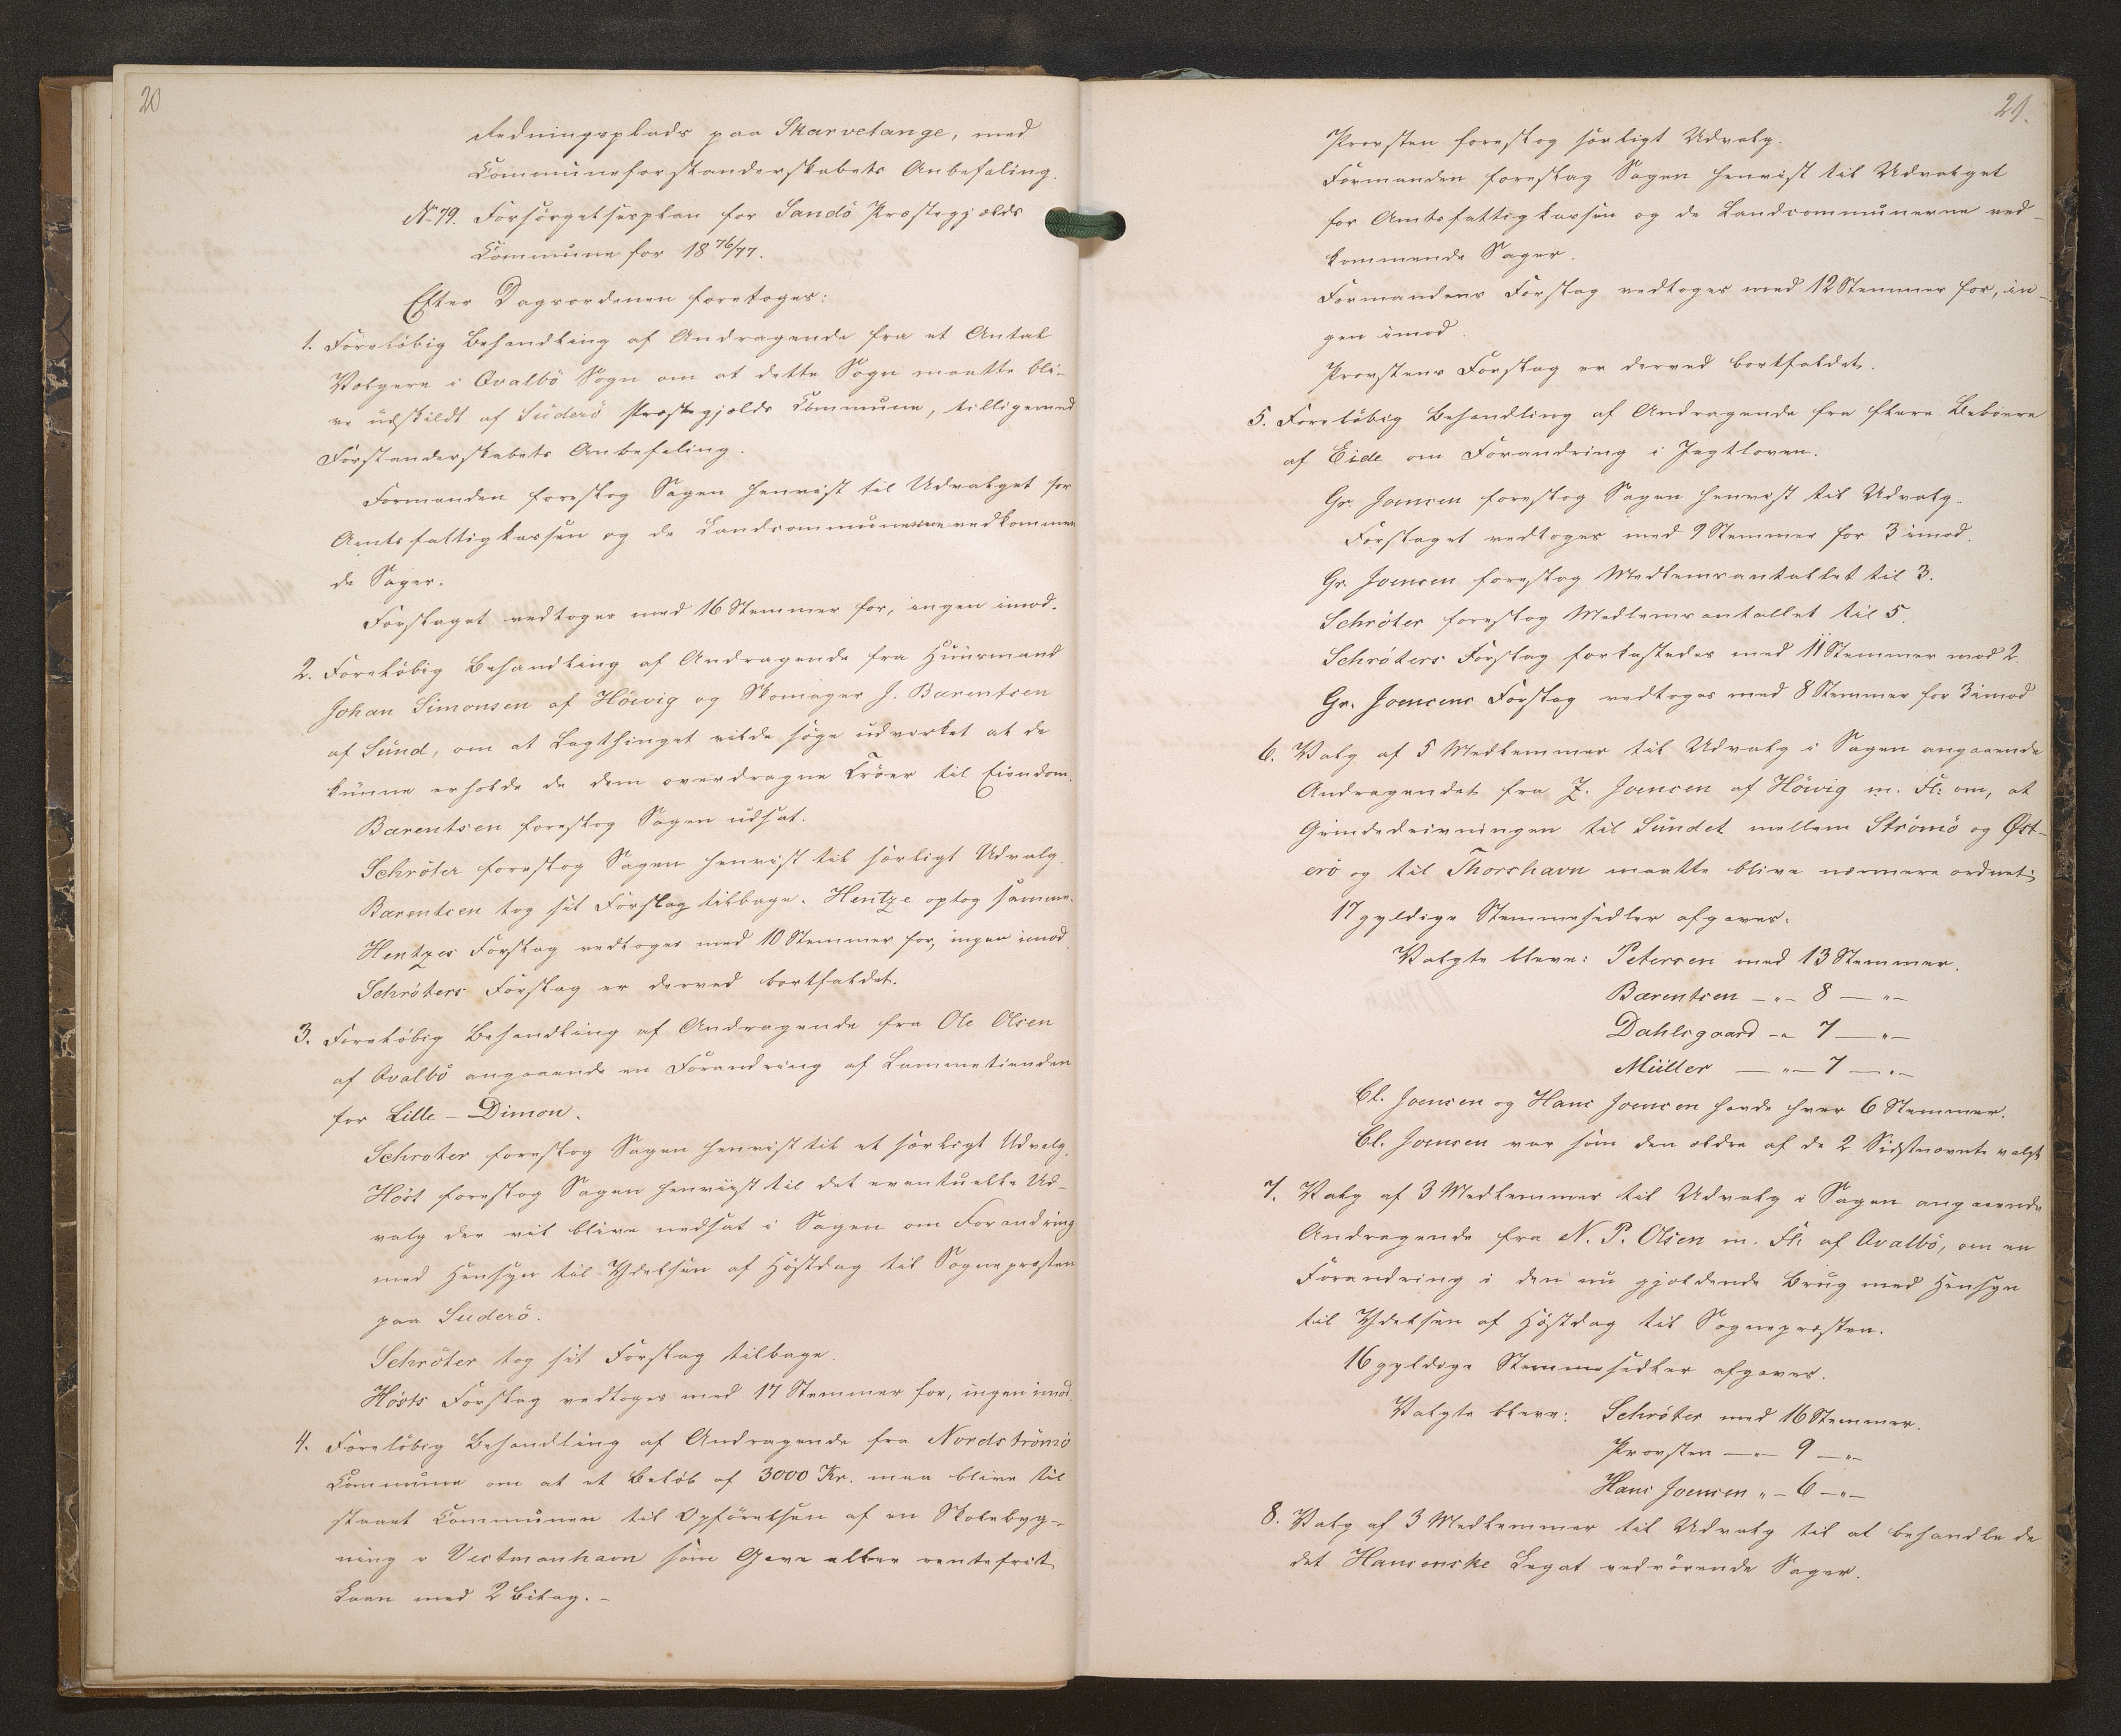 20
Fedningsplads paa Skarvetange, med
Communeforstanderskabets Anbefaling.
No 79. Forsörgelsesplan for Sandö Præstegjælds
Commune for 1876/77.
Efter Dagsordenen foretoges:
1. Foreløbig Behandling af Andragende fra et Antal
Vælgere i Qvalbö Sogn om at dette Sogn maatte bli-
ve udskildt af Suderö Præstegjælds Commune, tilligemed
Forstanderskabets Anbefaling.
Formanden foreslog Sagen henvist til Udvalget for
Amtsfattigkassen og de Landcommunerne vedkommen
de Sager.
Forslaget vedtoges med 16 Stemmer for, ingen imod.
2. Foreløbig Behandling af Andragende fra Huusmand
Johan Simonsen af Höivig og Skomager J. Bærentsen
af Sund, om at Lagthinget vilde søge udvirket at de
kunne erholde de dem overdragne Tröer til Eiendom.
Bærentsen foreslog Sagen udsat.
Schröter foreslog Sagen henvist til særligt Udvalg.
Bærentsen tog sit Forslag tilbage. Hentze optog samme.
Hentzes Forslag vedtoges med 10 Stemmer for, ingen imod.
Schröters Forslag er derved bortfaldet.
3. Foreløbig Behandling af Andragende fra Ole Olsen
af Qvalbö angaaende en Forandring af Lammetienden
for Lille-Dimon.
Schröter foreslog Sagen henvist til et særligt Udvalg.
Höst foreslog Sagen henviist til det eventuelle Ud-
valg der vil blive nedsat i Sagen om Forandring
med Hensyn til Ydelsen af Höstdag til Sognepræsten
paa Suderö.
Schröter tog sit Forslag tilbage.
Hösts Forslag vedtoges med 17 Stemmer for, ingen imod.
4. Foreløbig Behandling af Andragende fra Nordströmö
Commune om at et Beløb af 3000 Kr. maa blive til
staaet Communen til Opførelsen af en Skolebyg-
ning i Vestmanhavn som Gave eller rentefrit
Laan med 2 Bilag.-
21.
Provsten foreslog særligt Udvalg.
Formanden foreslog Sagen henvist til Udvalget
for Amtsfattigkassen og de Landcommunerne ved-
kommende Sager.
Formandens Forslag vedtoges med 12 Stemmer for, in-
gen imod.
Provstens Forslag er derved bortfaldet.
5. Foreløbig Behandling af Andragende fra flere Beboere
af Eide om Forandring i Jagtloven.
Gr. Joensen foreslog Sagen henvist til Udvalg.
Forslaget vedtoges med 9 Stemmer for 3 imod.
Gr. Joensen foreslog Medlemsantallet til 3.
Schröter foreslog Medlemsantallet til 5.
Schröters Forslag forkastedes med 11 Stemmer mod 2.
Gr. Joensens Forslag vedtoges med 8 Stemmer for 3 imod
6. Valg af 5 Medlemmer til Udvalg i Sagen angaaende
Andragendet fra J. Joensen af Höivig m. Fl. om, at
Grindedrivningen til Sundet mellem Strömö og Øst-
erö og til Thorshavn maatte blive nærmere ordnet.
17 gyldige Stemmesedler afgaves.
Valgte bleve: Petersen med 13 Stemmer.
Bærentsen -"- 8 -"-
Dahlsgaard -"- 7 -"-
Müller -"- 7 -"-
Cl. Joensen og Hans Joensen havde hver 6 Stemmer.
Cl. Joensen var som den ældre af de 2 Sidstnævnte valgt
7. Valg af 3 Medlemmer til Udvalg i Sagen angaaende
Andragende fra N. P. Olsen m. Fl. af Qvalbö, om en
Forandring i den nu gjældende Brug med Hensyn
til Ydelsen af Høstdag til Sognepræsten.
16 gyldige Stemmesedler afgaves.
Valgte bleve: Schröter med 16 Stemmer.
Provsten -"- 9 -"-
Hans Joensen " - 6 -"-
8. Valg af 3 Medlemmer til Udvalg til at behandle de
det Hansenske Legat vedrörende Sager.